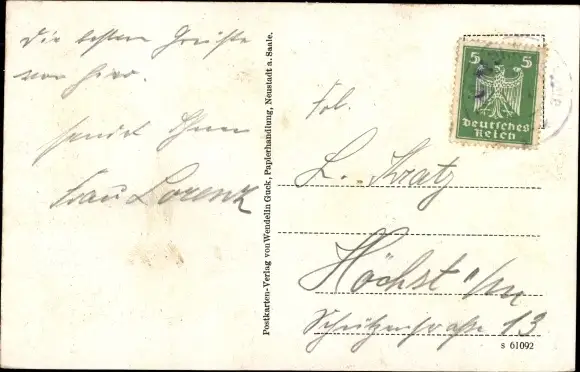 Die besten Grüße
von hier.
sendet Ihnen
Frau Lorenz
Postkarten-Verlag von Wendelin Guck, Papierhandlung, Neustadt a. Saale.
5 5
Deutsches
Reich
Frl.
L. Kratz
Höchst a/M
Schützenstraße 13
s 61092